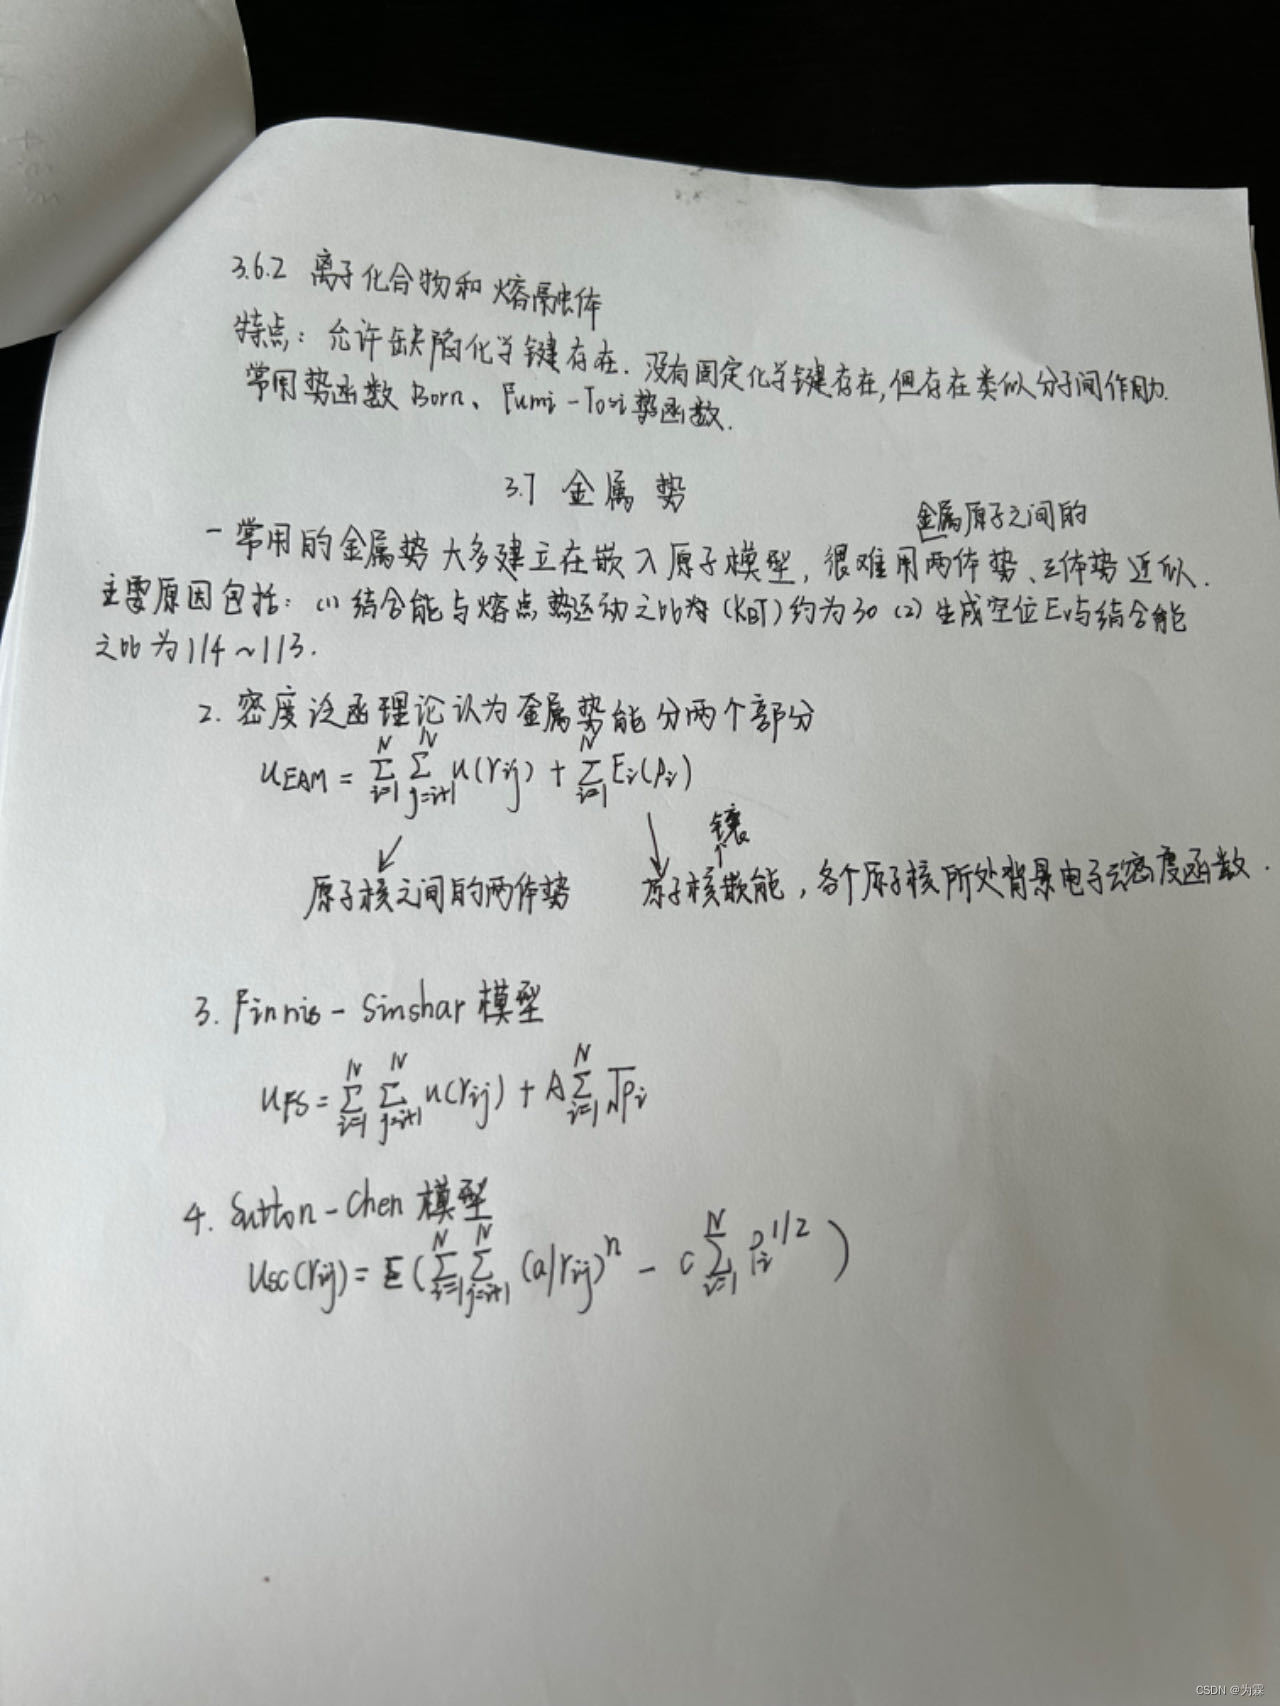 3.6.2 离子化合物和熔融体
特点：允许缺陷化学键存在．没有固定化学键存在,但存在类似分子间作用力.
常用势函数 Born、Fumi-Tosi势函数.
3.7 金属势
金属原子之间的
一常用的金属势大多建立在嵌入原子模型，很难用两体势、三体势近似.
主要原因包括：(1) 结合能与熔点热运动之比为 (KBT) 约为30 (2) 生成空位Ev与结合能
之比为 1/4~1/3.
2. 密度泛函理论认为金属势能分两个部分
U_EAM = \sum_{i=1}^{N} \sum_{j=i+1}^{N} u(r_ij) + \sum_{i=1}^{N} E_i(ρ_i)
镶
原子核之间的两体势 原子核嵌能，各个原子核所处背景电子云密度函数.
3. Finnis-Sinshar 模型
U_FS = \sum_{i=1}^{N} \sum_{j=i+1}^{N} u(r_ij) + A \sum_{i=1}^{N} √ρ_i
4. Sutton-Chen 模型
U_SC(r_ij) = ε ( \sum_{i=1}^{N} \sum_{j=i+1}^{N} (a/r_ij)^n - c \sum_{i=1}^{N} ρ_i^{1/2} )
CSDN @为霖